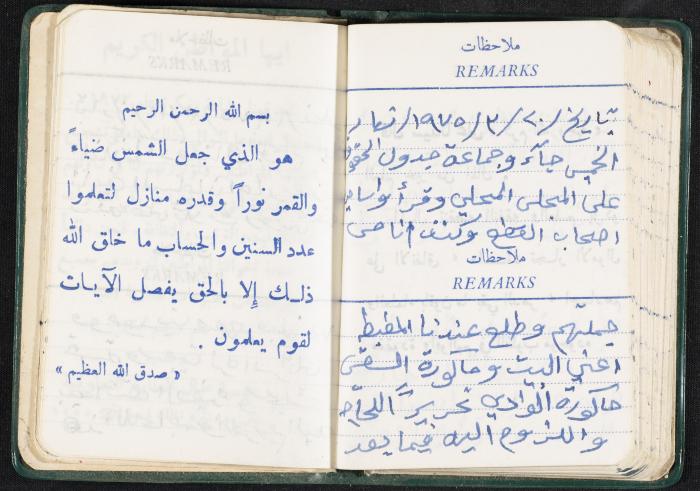 بسم الله الرحمن الرحيم
هو الذي جعل الشمس ضياءً
والقمر نوراً وقدره منازل لتعلموا
عدد السنين والحساب ما خلق الله
ذلك إلا بالحق يفصل الآيات
لقوم يعلمون .
« صدق الله العظيم »
ملاحظات
REMARKS
بتاريخ /٢٠/ ٣/ ١٩٧٥/ نهار
الخميس جآء وجماعة جدول
على المجلس المحلي وقرأ
اصحاب القطع وكنت انا من
ملاحظات
REMARKS
جملتهم وطلع عندنا
اعني البيت وحاكورة
حاكورة الوادي تحرير
واللزوم اليه فيما بعد